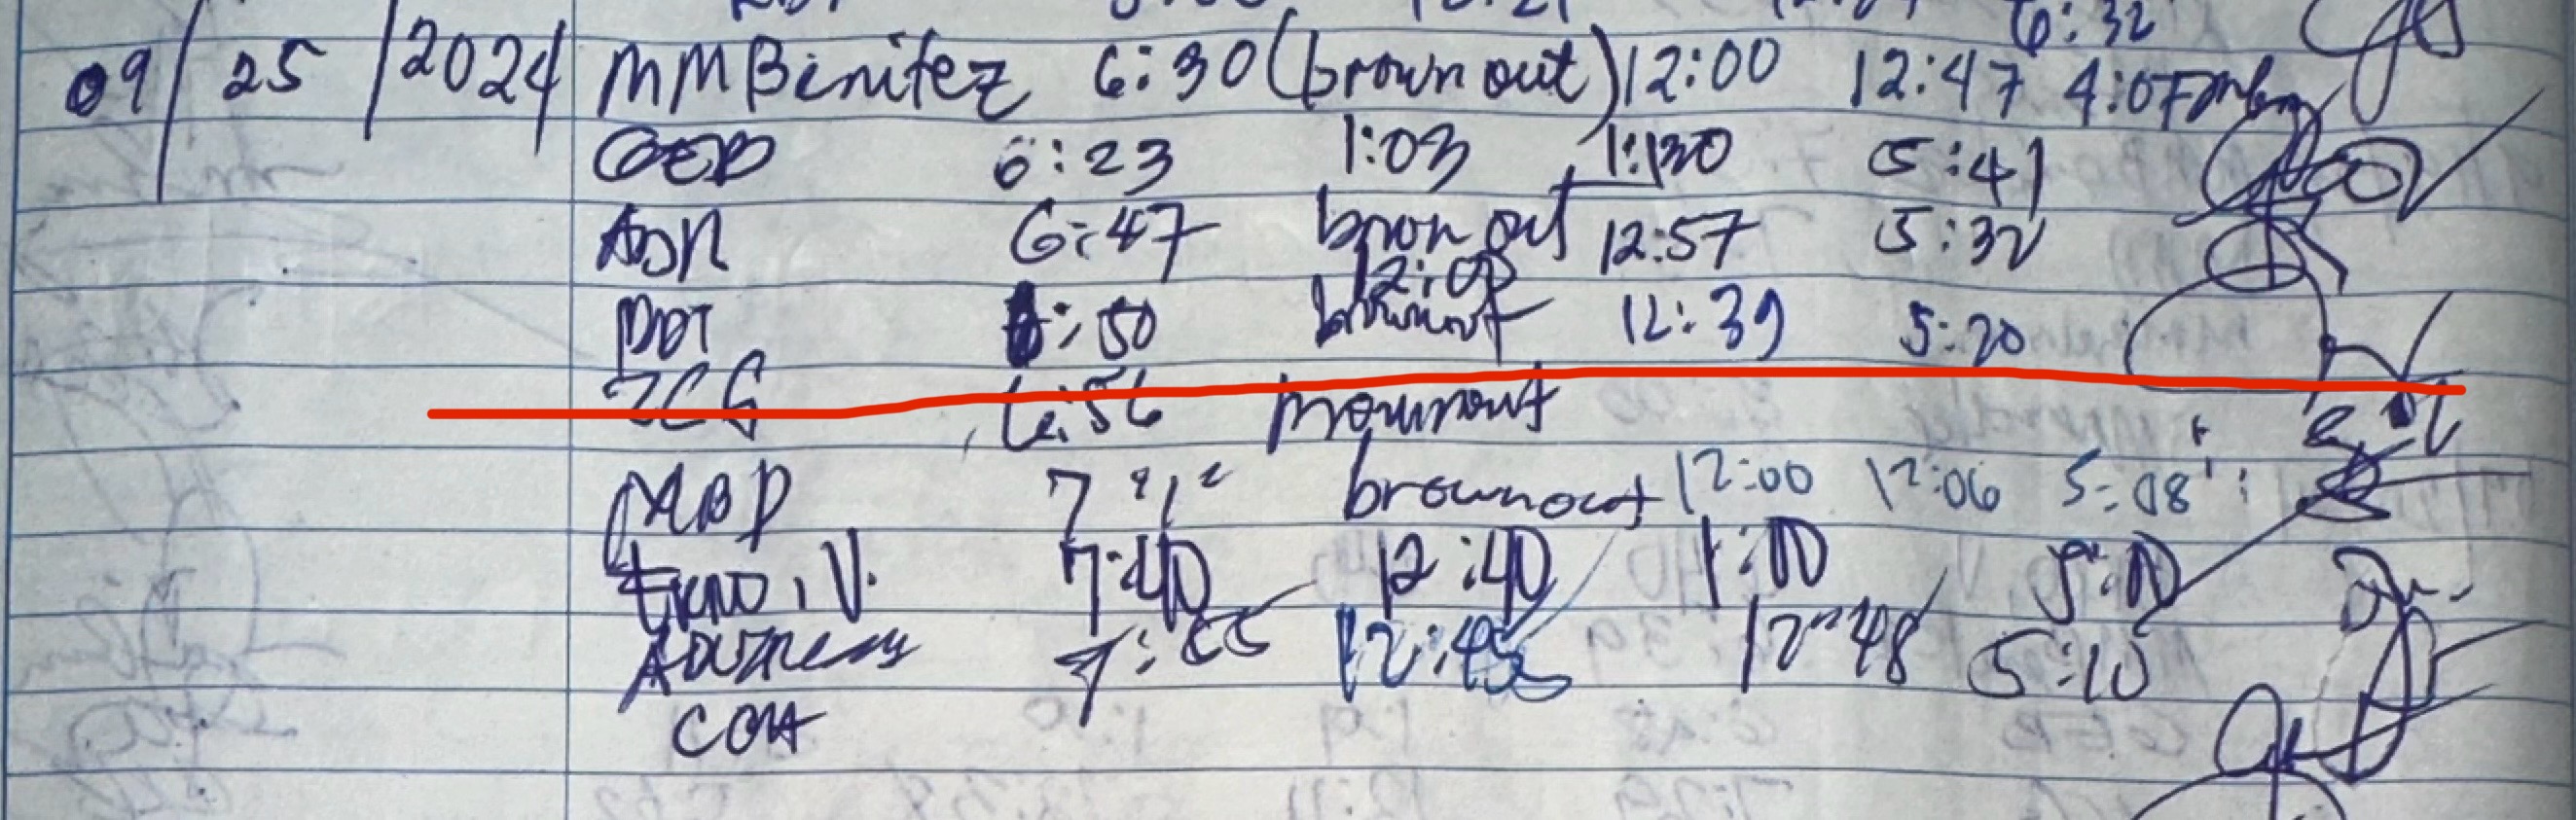 6:32
09/25/2024 MM Benitez 6:30 (brown out) 12:00 12:47 4:07
GEB 6:23 1:03 1:30 5:41
ADR 6:47 brown out 12:57 5:32
12:00
DDT 6:50 brownout 12:39 5:20
ZCG 6:56 brownout
MBD 7:12 brownout 12:00 12:06 5:08
7:40 12:40 1:10 5:10
7:55 12:45 12:48 5:10
COA